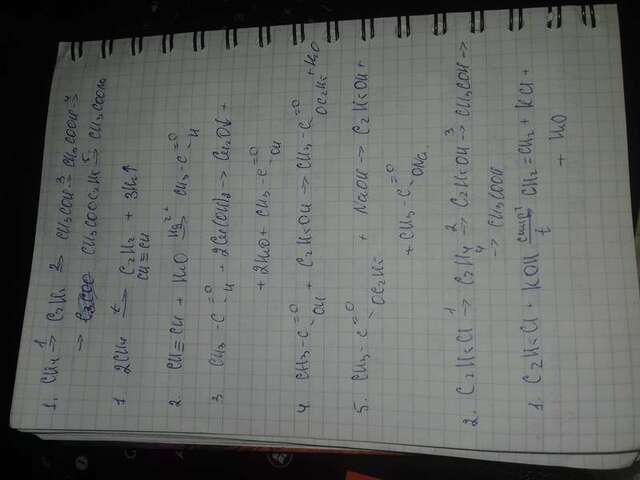 1. CH₄ →¹ C₂H₂ →² CH₃COH →³ CH₃COOH →⁴
→ CH₃COOC₂H₅ →⁵ CH₃COONa
1 2CH₄ →t C₂H₂ + 3H₂↑
CH≡CH
2 CH≡CH + H₂O →Hg²⁺ CH₃-C=O
H
3. CH₃-C=O + 2Cu(OH)₂ → Cu₂O↓ +
H
+ 2H₂O + CH₃-C=O
OH
4. CH₃-C=O + C₂H₅OH → CH₃-C=O + H₂O
OH OC₂H₅
5. CH₃-C=O + NaOH → C₂H₅OH +
OC₂H₅
+ CH₃-C=O
ONa
2. C₂H₅Cl →¹ C₂H₄ →² C₂H₅OH →³ CH₃COH →
4 → CH₃COOH
1. C₂H₅Cl + KOH спирт→t CH₂=CH₂ + KCl +
+ H₂O